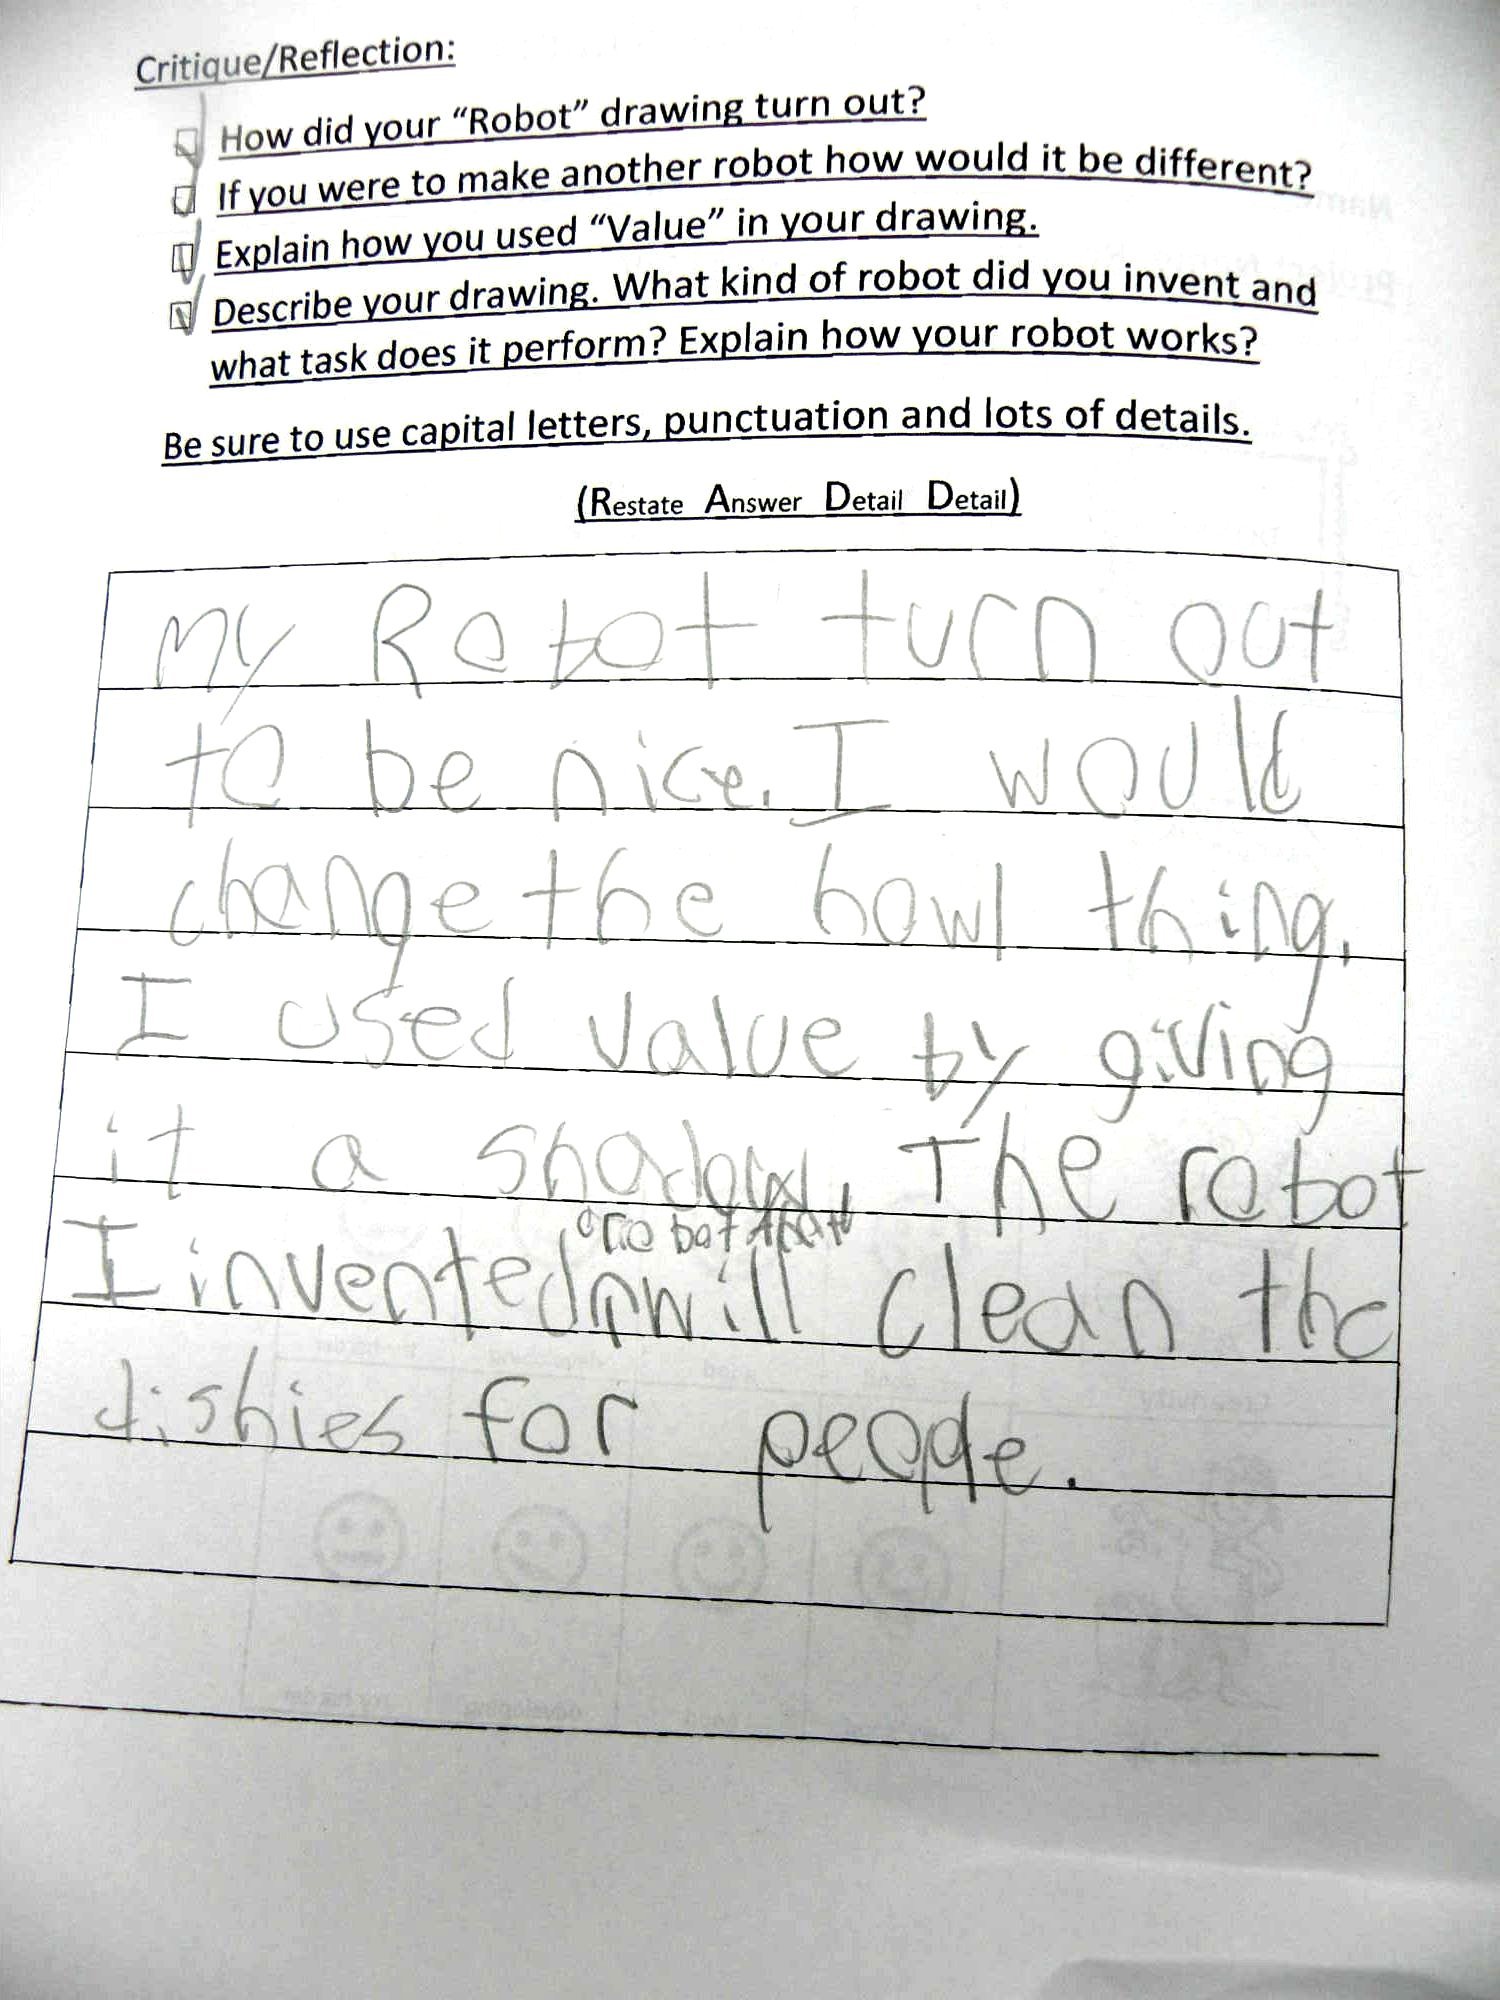 Critique/Reflection:
How did your “Robot” drawing turn out?
If you were to make another robot how would it be different?
Explain how you used “Value” in your drawing.
Describe your drawing. What kind of robot did you invent and
what task does it perform? Explain how your robot works?
Be sure to use capital letters, punctuation and lots of details.
(Restate Answer Detail Detail)
My Robot turn out
to be nice. I would
change the bowl thing.
I used value by giving
it a shadow. The robot
a robot that
I invented will clean the
dishies for people.